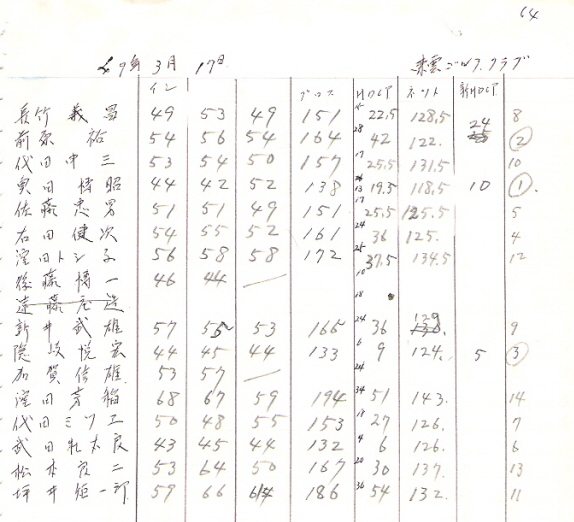 64
49年 3月 17日 東雲ゴルフクラブ
イン グロス HDCP ネット 新HDCP
長竹 義昌 49 53 49 151 15 22.5 128.5 24 8
前原 祐 54 56 54 164 28 42 122. 2
代田中三 53 54 50 157 17 25.5 131.5 10
奥田博昭 44 42 52 138 13 19.5 118.5 10 1.
佐藤忠男 51 51 49 151 17 25.5 125.5 5
右田健次 54 55 52 161 24 36 125. 4
窪田トシ子 56 58 58 172 25 37.5 134.5 12
後藤博一 46 44 — 10
遠藤 18
新井武雄 57 55 53 165 24 36 129 9
隠岐悦宏 44 45 44 133 6 9 124. 5 3
加賀信雄 53 57 — 24
窪田芳稲 68 67 59 194 34 51 143. 14
代田ミツエ 50 48 55 153 18 27 126. 7
武田 43 45 44 132 4 6 126. 6
松本良二 53 64 50 167 20 30 137. 13
坪井矩一郎 59 66 64 186 36 54 132. 11